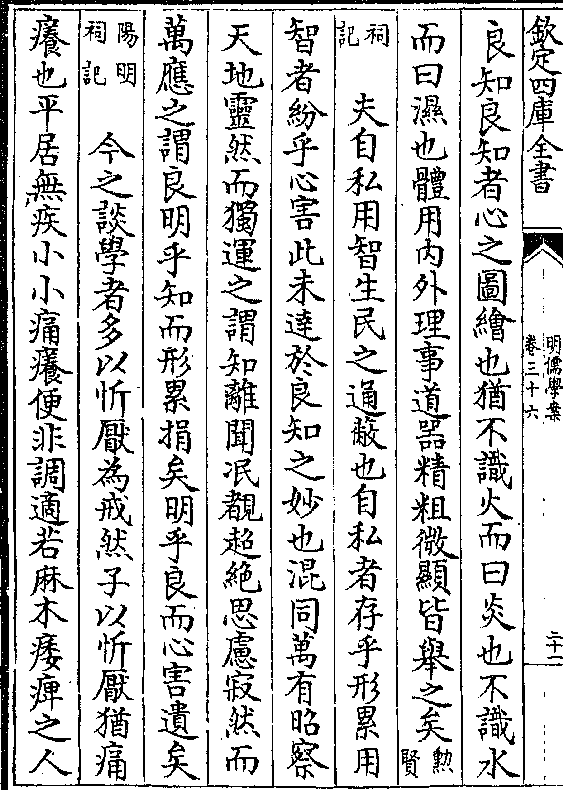 欽定四庫全書
明儒學案
卷三十六
二十一
良知良知者心之圖繪也猶不識火而曰炎也不識水
而曰濕也體用內外理事道器精粗微顯皆舉之矣勲賢
祠記　夫自私用智生民之通蔽也自私者存乎形累用
智者紛乎心害此未達於良知之妙也混同萬有昭察
天地靈然而獨運之謂知離聞泯覩超絶思慮寂然而
萬應之謂良明乎知而形累捐矣明乎良而心害遺矣
陽明祠記　今之談學者多以忻厭為戒然予以忻厭猶痛
癢也平居無疾小小痛癢便非調適若麻木痿痺之人